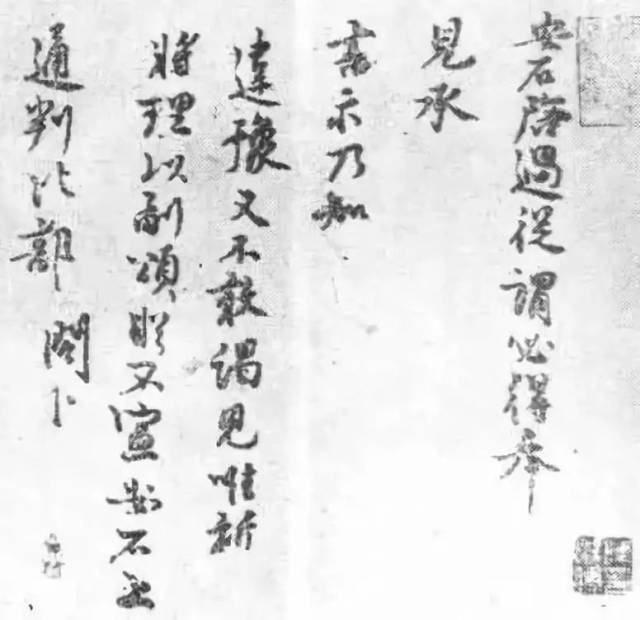 安石啓過從謂必得奉
見承
書示乃知
違豫又不敢謁見唯祈
將理以副頌不宣安石上
通判比部閤下